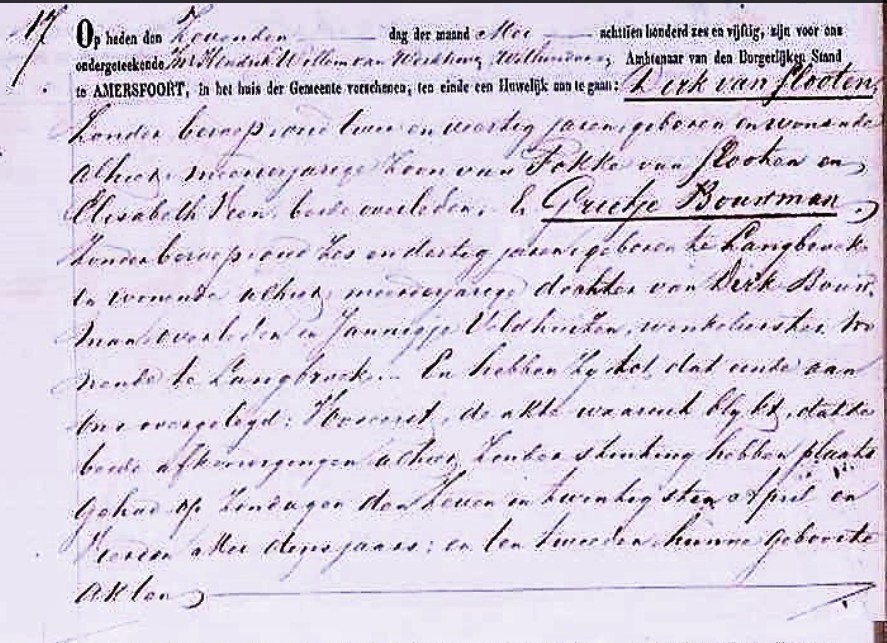 17
Op heden den Zevenden dag der maand Mei achttien honderd zes en vijftig, zijn voor ons
ondergeteekende Mr Hendrik Willem van Werkhoven, Wethouder, Ambtenaar van den Burgerlijken Stand
te AMERSFOORT, in het huis der Gemeente verschenen, ten einde een Huwelijk aan te gaan: Dirk van Slooten,
Zonder beroep, oud twee en veertig jaren, geboren en wonende
alhier, meerderjarige Zoon van Fokke van Slooten en
Elisabeth Veen, beide overleden. & Grietje Bouwman,
Zonder beroep, oud Zes en dertig jaren, geboren te Langbroek
en wonende alhier, meerderjarige dochter van Dirk Bouw-
man overleden en Jannigje Veldhuizen, winkelierster, wo
nende te Langbroek. En hebben Zy tot dat einde aan
ons overgelegd: Vooreerst, de akte waaruit blykt, dat de
beide afkondigingen alhier, Zonder stuiting hebben plaats
gehad op Zondagen den Zeven en twintigsten April en
Vierden Mei dezes jaars; en ten tweeden hunne geboorte
akten